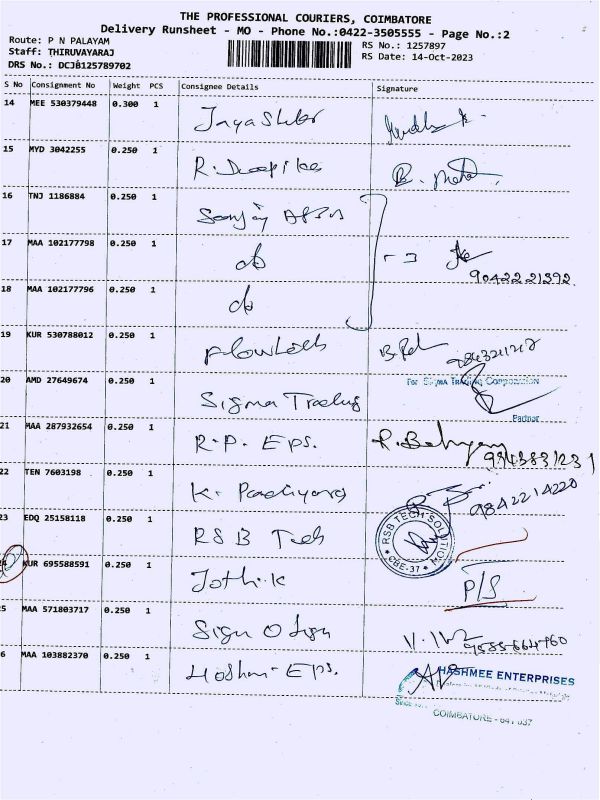 THE PROFESSIONAL COURIERS, COIMBATORE
Delivery Runsheet - MO - Phone No.:0422-3505555 - Page No.:2
Route: P N PALAYAM
RS No.: 1257897
Staff: THIRUVAYARAJ
RS Date: 14-Oct-2023
DRS No.: DCJB125789702
S No Consignment No Weight PCS Consignee Details Signature
14 MEE 530379448 0.300 1
15 MYD 3042255 0.250 1 R. Deepika
16 TNJ 1186884 0.250 1 Sanjay
17 MAA 102177798 0.250 1 do
90422 21392
18 MAA 102177796 0.250 1 do
19 KUR 530788012 0.250 1 Flowtech
20 AMD 27649674 0.250 1 Sigma Trading For SIGMA TRADING CORPORATION
Partner
21 MAA 287932654 0.250 1 R.P. Eps.
22 TEN 7603198 0.250 1 K. 9842214220
23 EDQ 25158118 0.250 1 RSB Tech RSB TECH SOLUTION * CBE-37 *
24 KUR 695588591 0.250 1 Jothi.K P/S
5 MAA 571803717 0.250 1 Sign O Sign
6 MAA 103882370 0.250 1 Hoshmi Eps. HASHMEE ENTERPRISES
COIMBATORE - 641 037